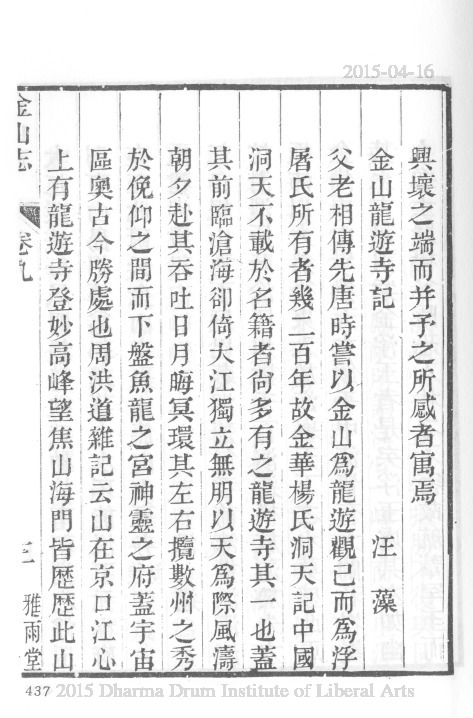 2015-04-16
興壞之端而幷予之所感者寓焉
金山龍遊寺記 汪藻
父老相傳先唐時嘗以金山爲龍遊觀已而爲浮
屠氏所有者幾二百年故金華楊氏洞天記中國
洞天不載於名籍者尙多有之龍遊寺其一也蓋
其前臨滄海卻倚大江獨立無朋以天爲際風濤
朝夕赴其吞吐日月晦冥環其左右攬數州之秀
於俛仰之間而下盤魚龍之宮神靈之府蓋宇宙
區奧古今勝處也周洪道雜記云山在京口江心
上有龍遊寺登妙高峰望焦山海門皆歴歴此山
金山志 卷九 三 雅雨堂
437 2015 Dharma Drum Institute of Liberal Arts